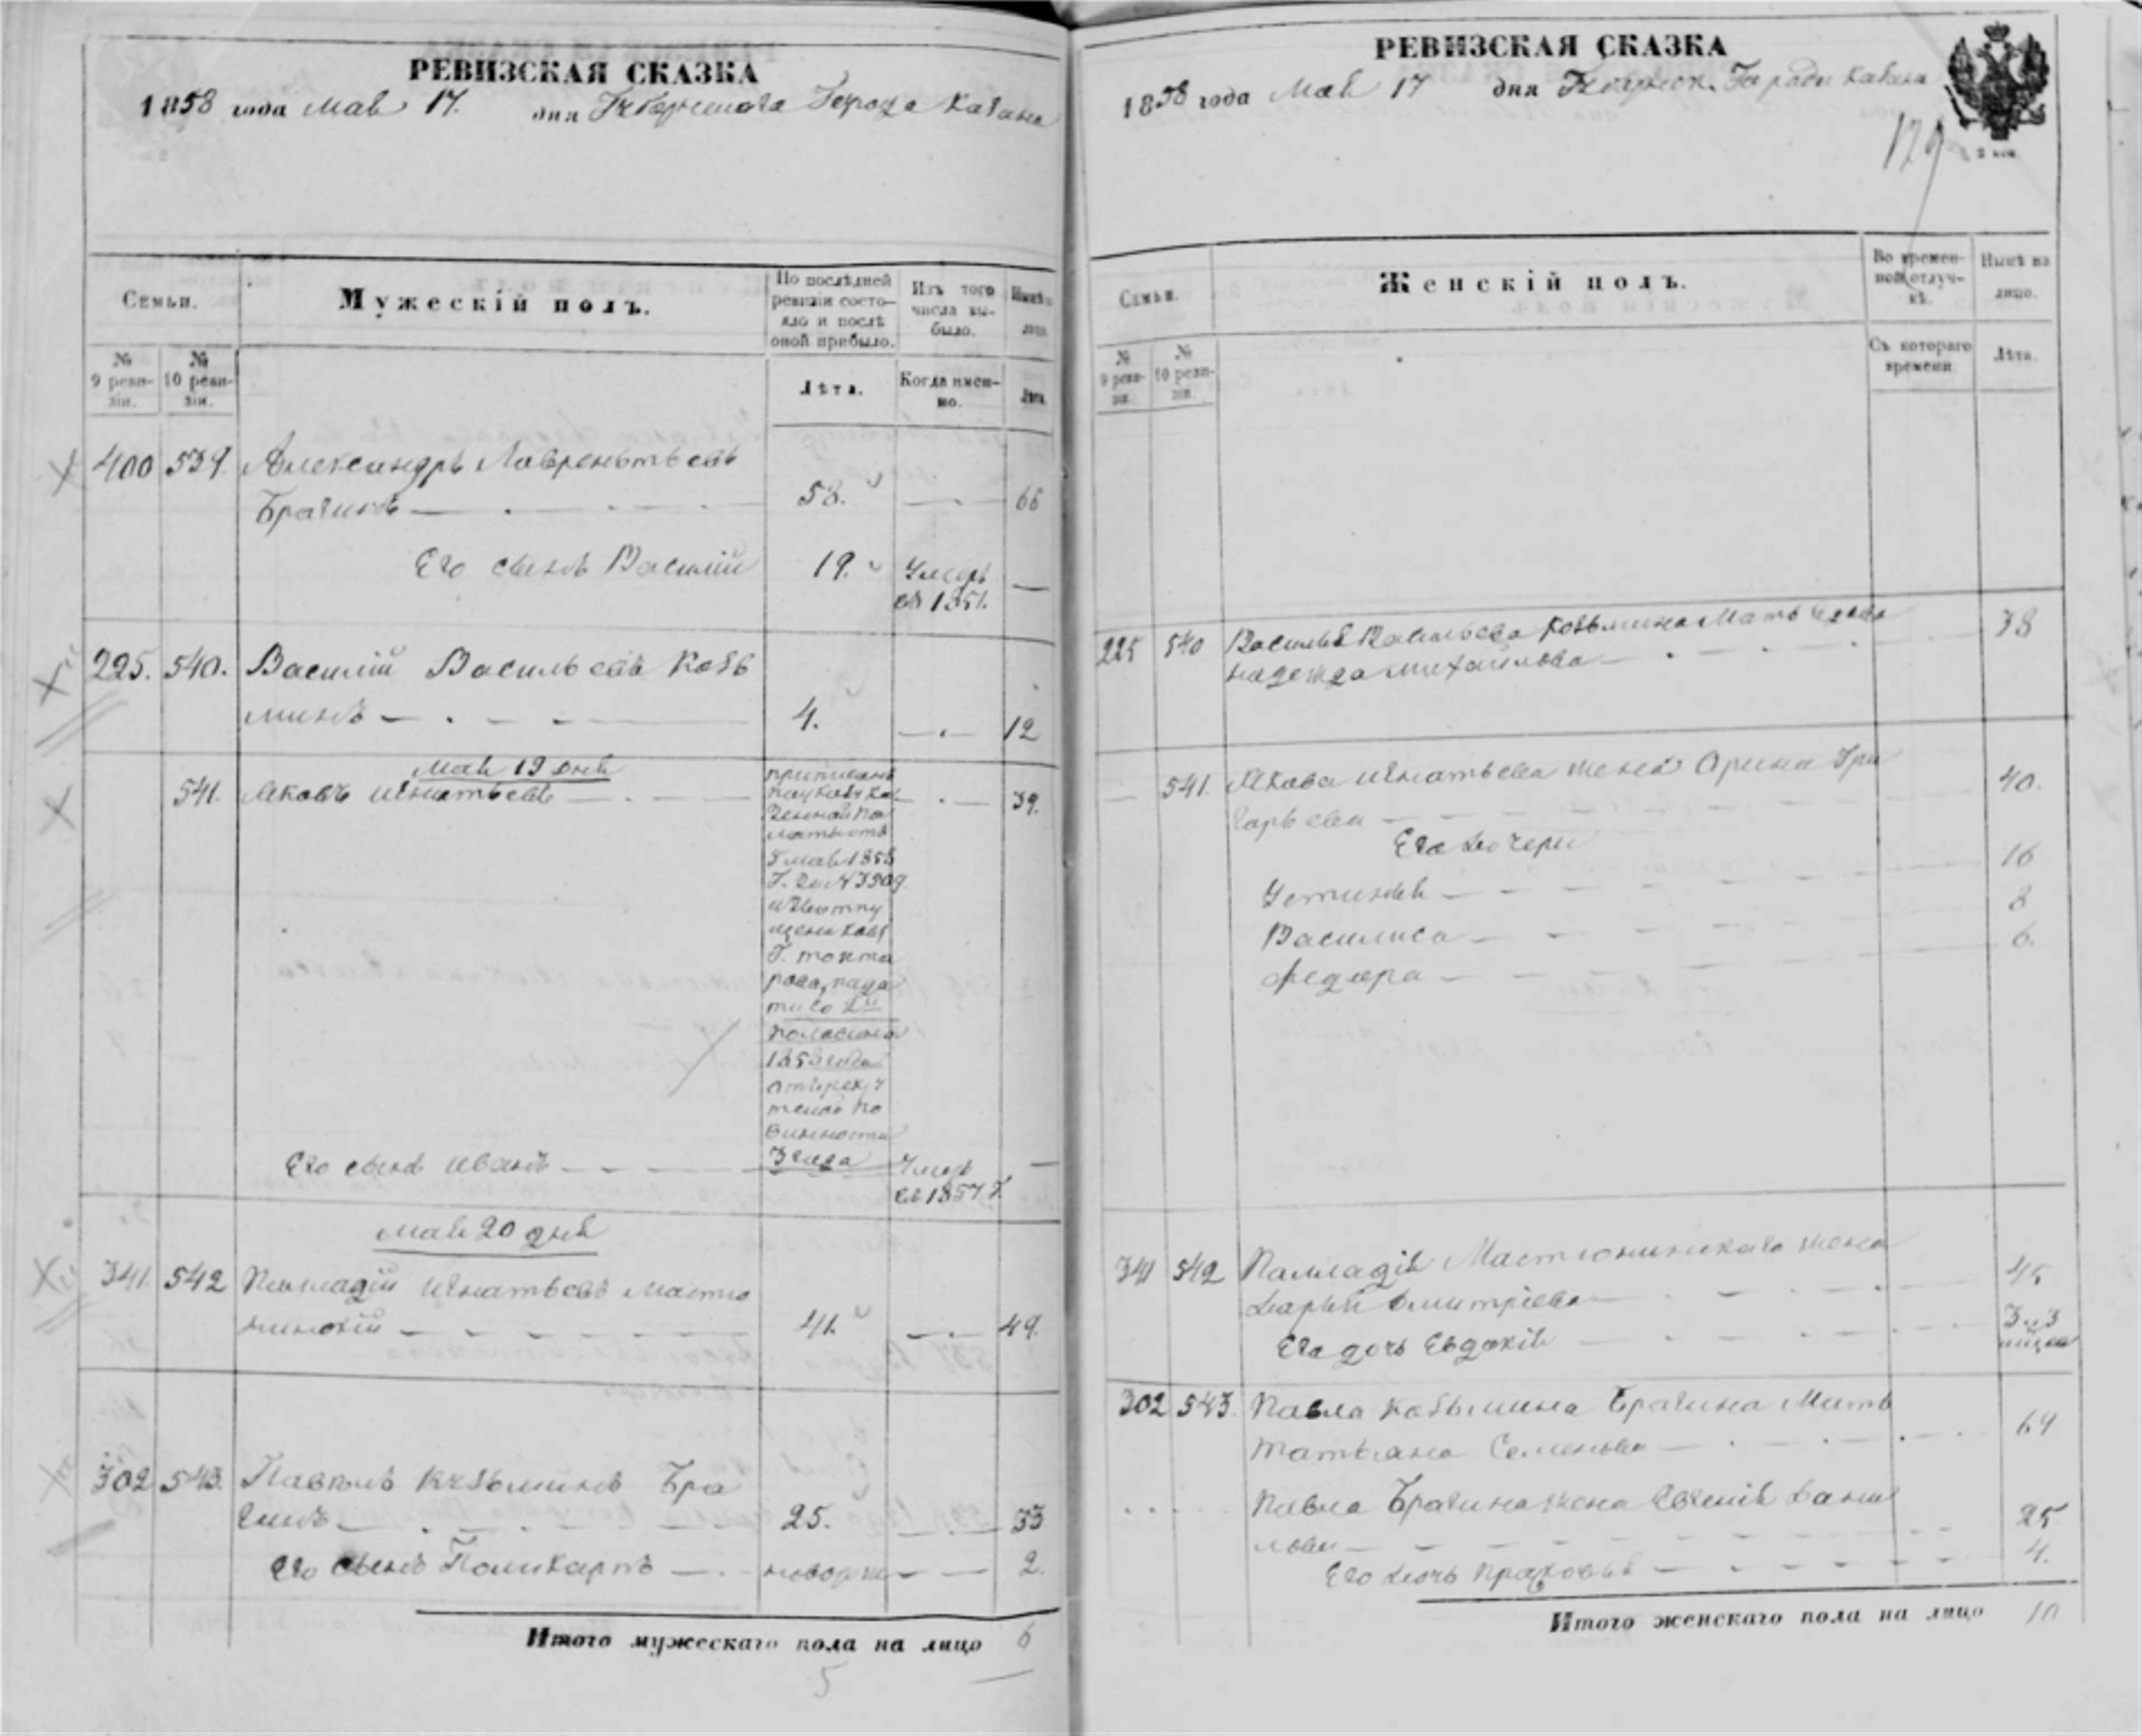 РЕВИЗСКАЯ СКАЗКА
1858 года Маѧ 17. дня Губернскаго Города Казани
Семьи.
Мужескій полъ.
По послѣдней ревизіи состояло и послѣ оной прибыло.
Изъ того числа выбыло.
Нынѣ на лицо.
№ 9 ревизіи.
№ 10 ревизіи.
Лѣта.
Когда именно.
Лѣта.
400 539. Александръ Лаврентьевъ
Брагинъ 58. 66
Его сынъ Василій 19. Умеръ
въ 1851.
225. 540. Василій Васильевъ Козь
минъ 4. 12
Мая 19 дня
541. Яковъ Игнатьевъ 39.
причисленъ
по указу Ка
зенной Па
латы отъ
5 мая 1858
Г. за №
изъ отпу
щенниковъ
Г.
съ 2й
половины
года
от рекрут
ской по
винности
3 года
Его сынъ Иванъ Умеръ
въ 1857 Г.
Мая 20 дня
341. 542 Палладій Игнатьевъ Мастю
нинскій 41. 49.
302 543. Павелъ Кузьминъ Бра
гинъ 25. 33
Его сынъ Поликарпъ новорож 2.
Итого мужескаго пола на лицо 6
5
РЕВИЗСКАЯ СКАЗКА
1858 года Мая 17 дня Губернск. Города Казани
179
Семьи.
Женскій полъ.
Во временной отлучкѣ.
Нынѣ на лицо.
№ 9 ревизіи.
№ 10 ревизіи.
Съ котораго времени.
Лѣта.
225 540 Василья Васильева Козьмина Мать
Надежда Михайлова 38
541. Якова Игнатьева жена Арина Гри
горьева 40.
Его дочери
Устинья 16
Василиса 8
Федора 6.
341 542 Палладія Мастюнинскаго жена
Дарья Дмитріева 45
Его дочь Евдокія
302 543. Павла Козьмина Брагина Мать
Татьяна Семенова 64
Павла Брагина жена Евгенія Дани
лова 25
Его дочь Прасковья 4.
Итого женскаго пола на лицо 10